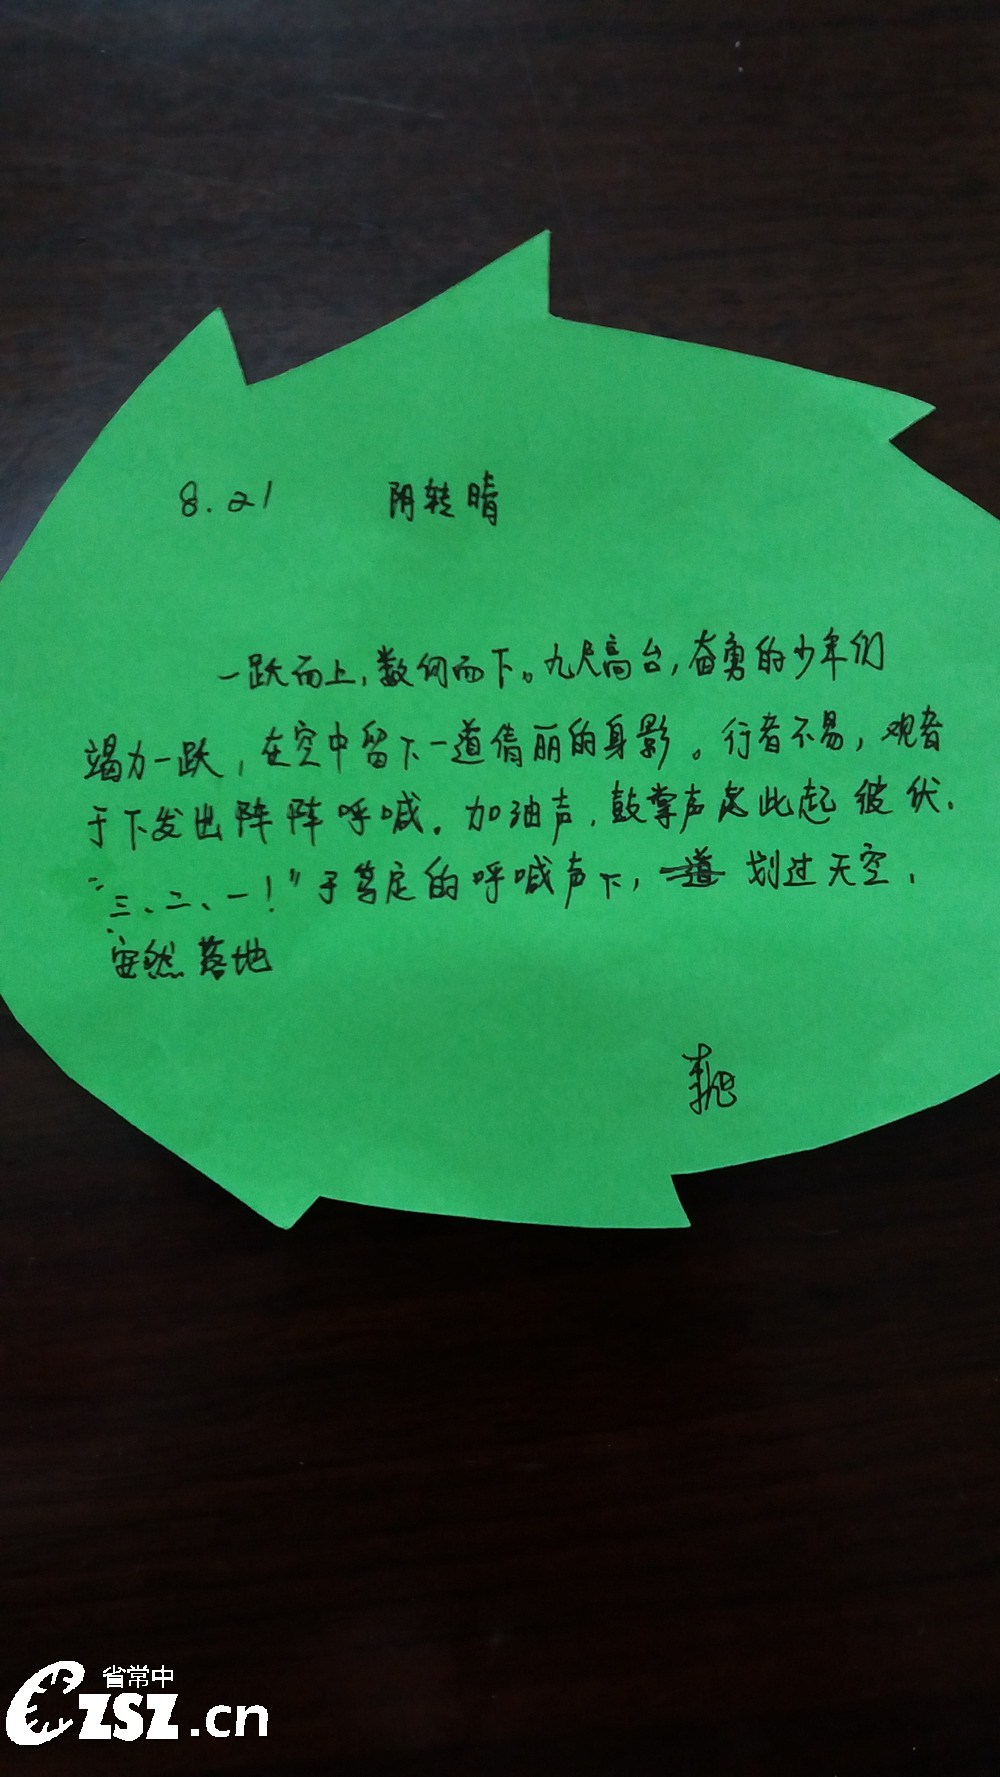 8.21 阴转晴
一跃而上，数仞而下。九尺高台，奋勇的少年们
竭力一跃，在空中留下一道倩丽的身影。行者不易，观者
于下发出阵阵呼喊。加油声，鼓掌声 此起彼伏．
"三、二、一！"于笃定的呼喊声下， 划过天空．
安然落地
省常中
CZSZ.cn